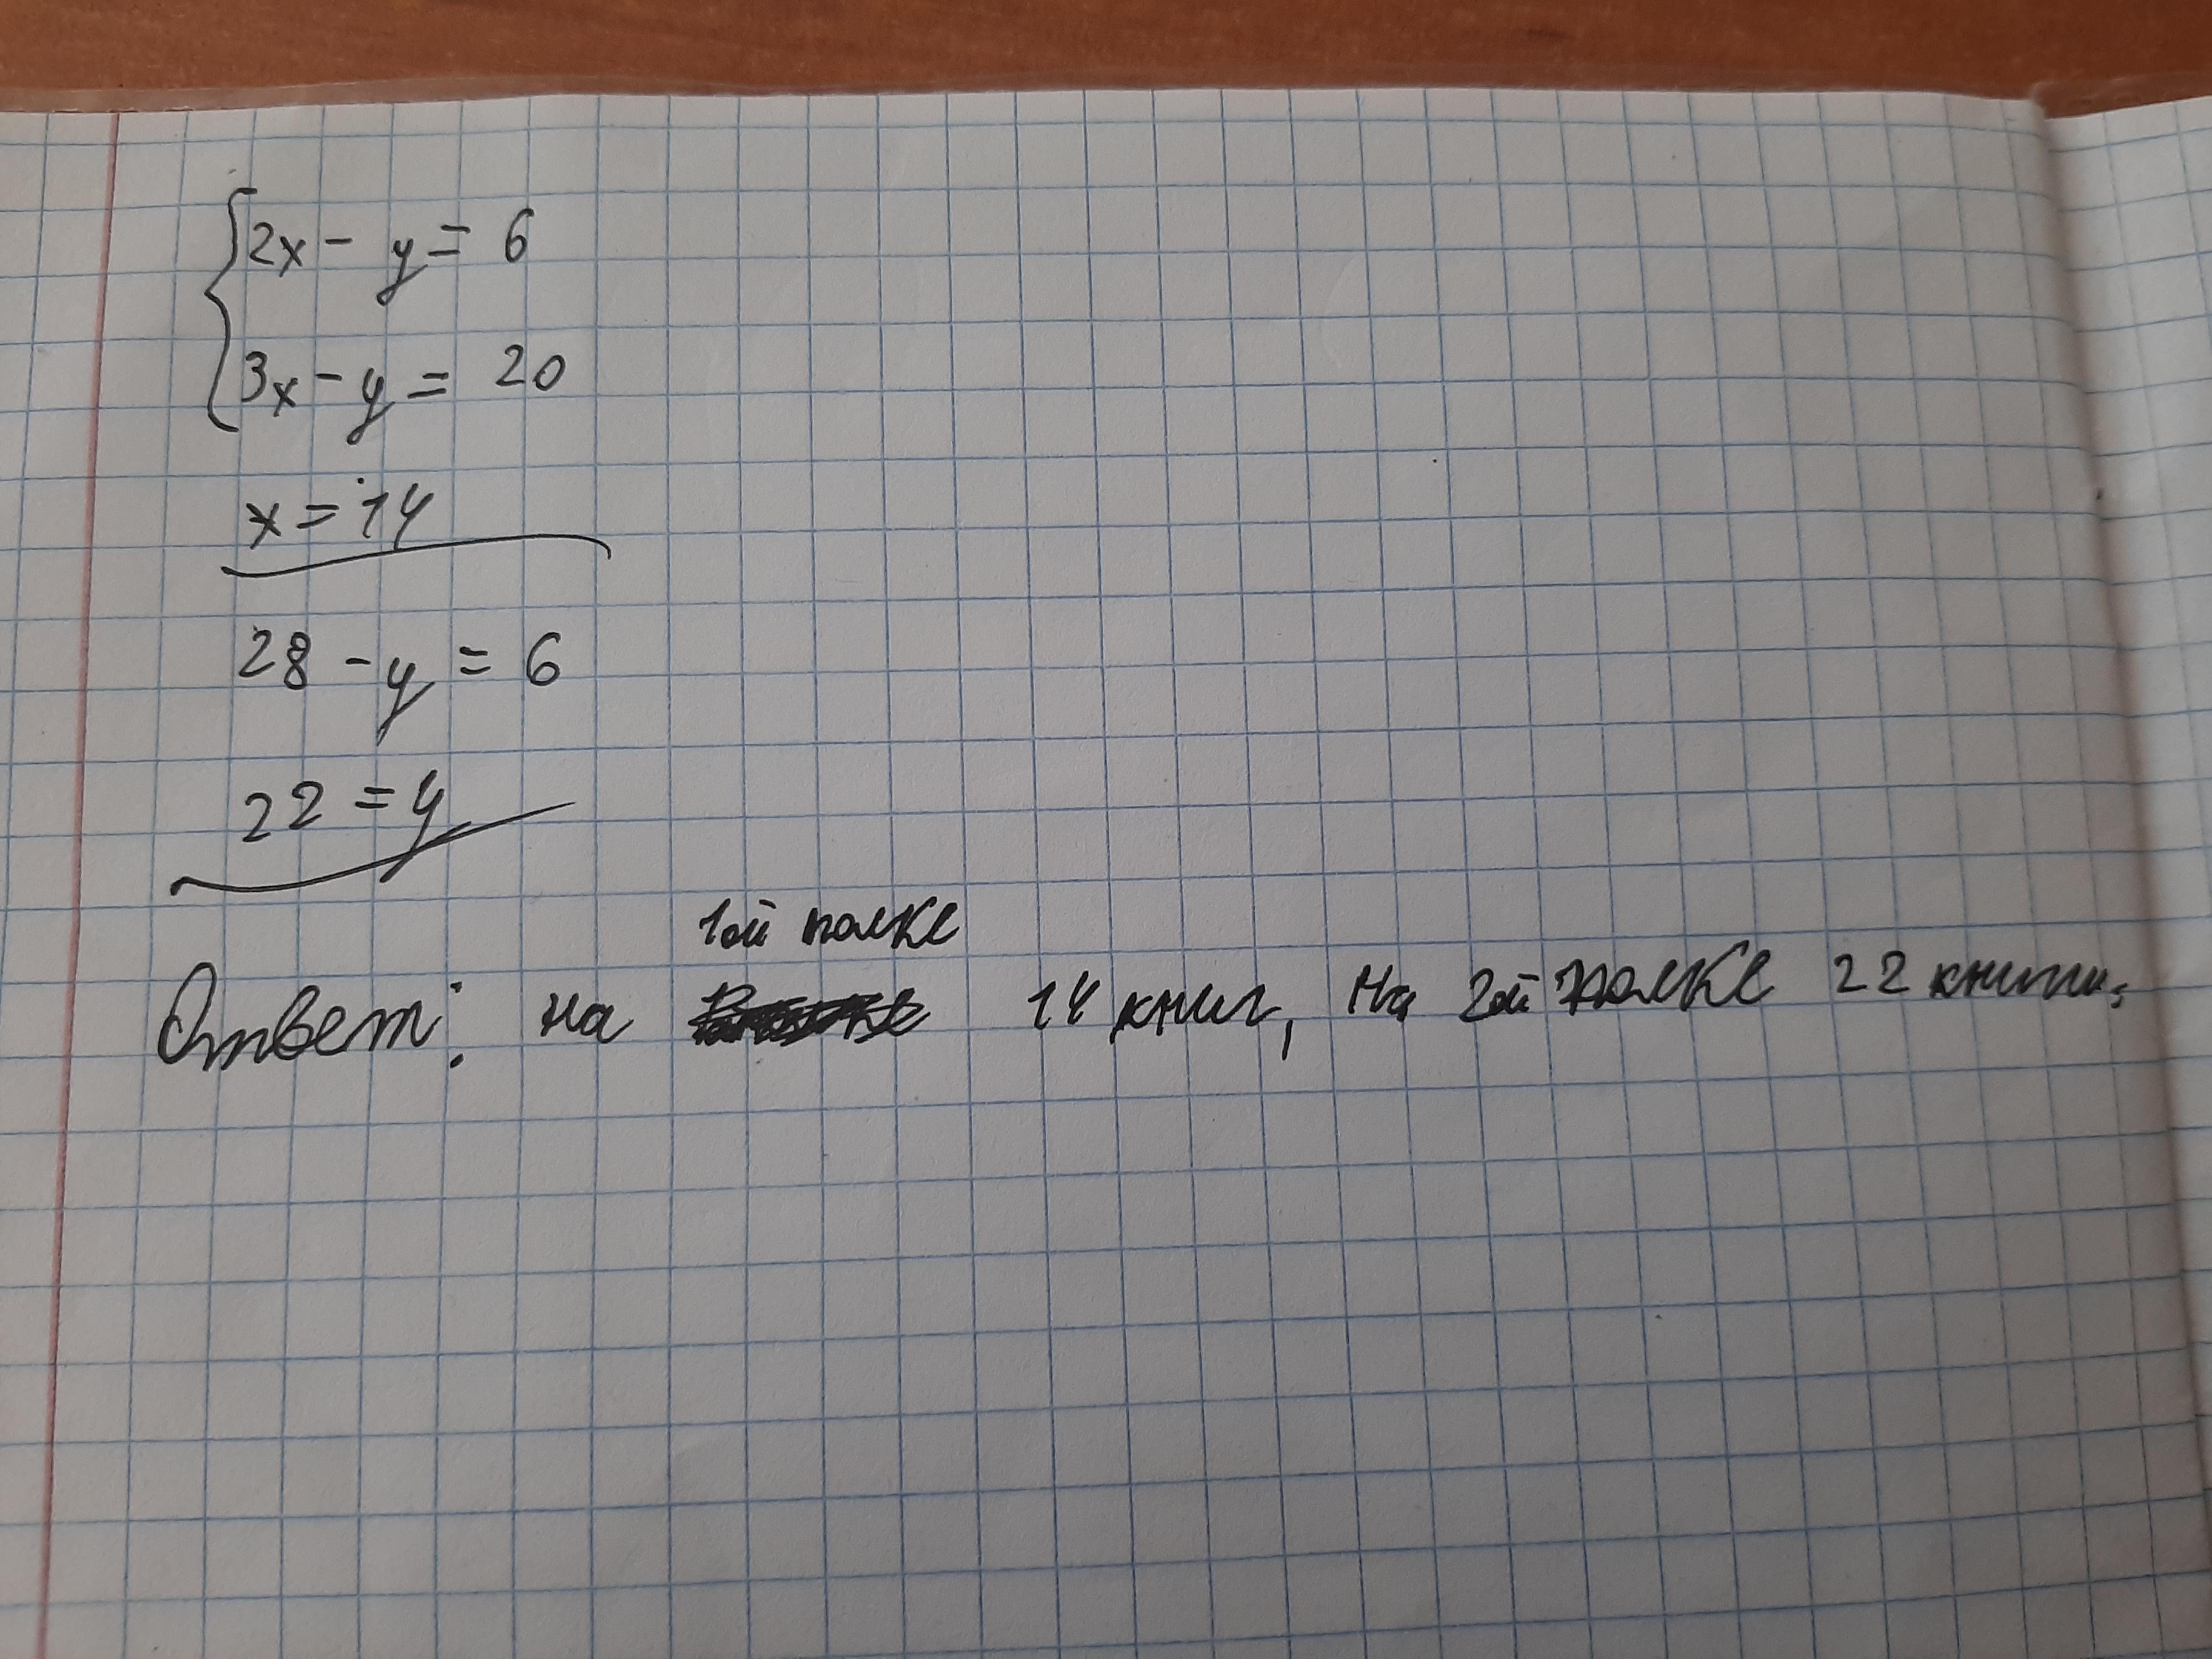 2x - y = 6
3x - y = 20
x = 14
28 - y = 6
22 = y
1ой полке
Ответ: на 14 книг, на 2ой полке 22 книги.